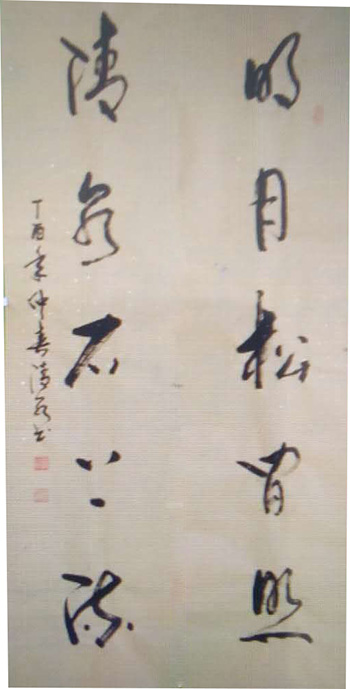 明月松间照
清泉石上流
丁酉年仲春
书